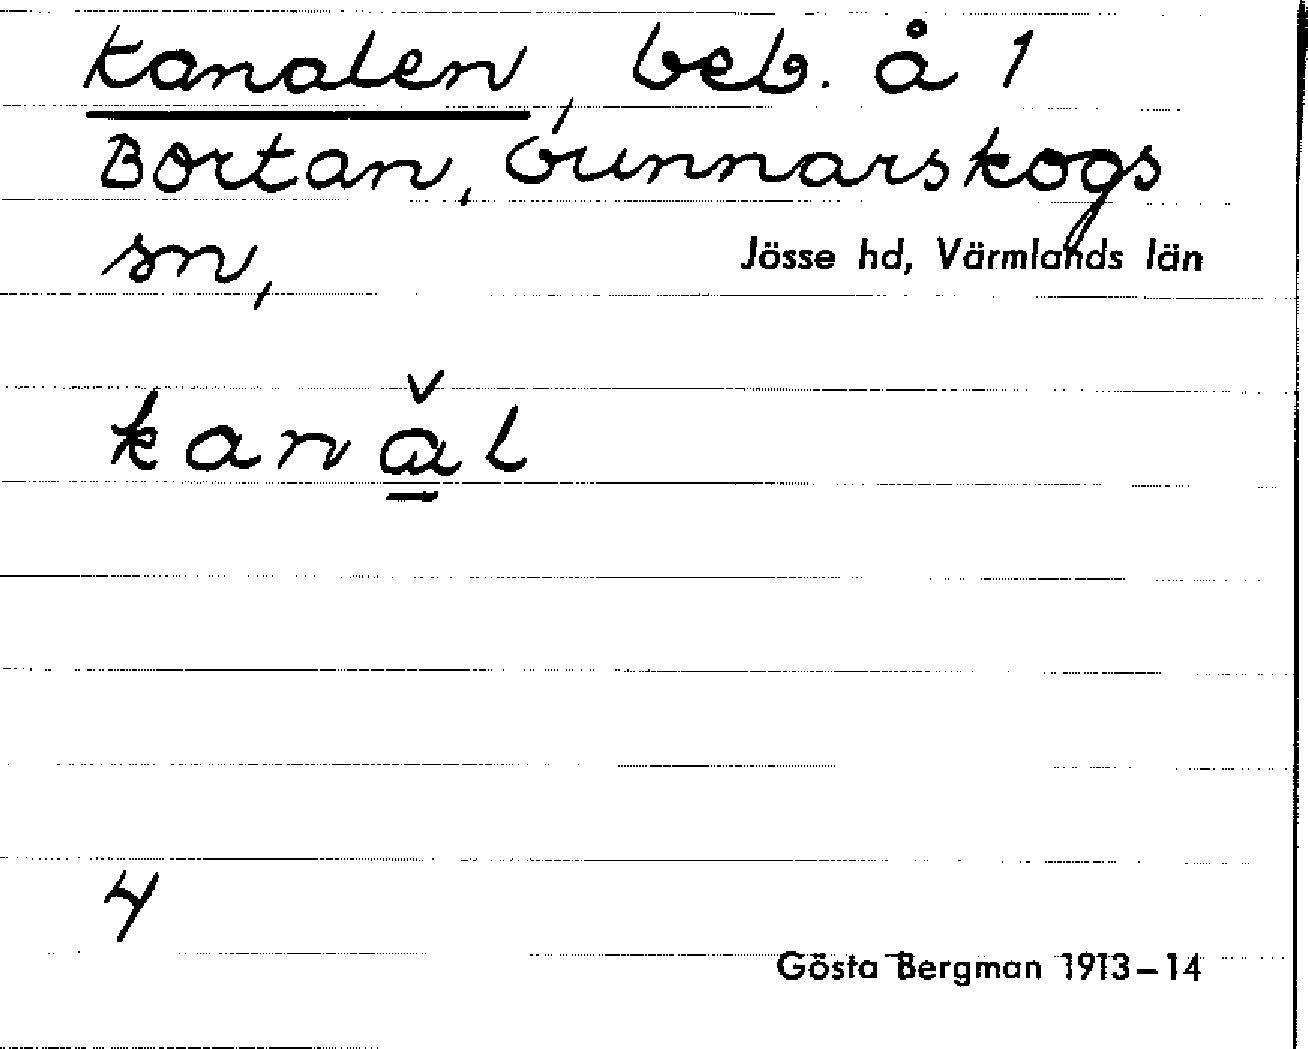 Kanalen, beb. å 1
Bortan, Gunnarskogs
sn, Jösse hd, Värmlands län
kanǎ̱l
4
Gösta Bergman 1913–14